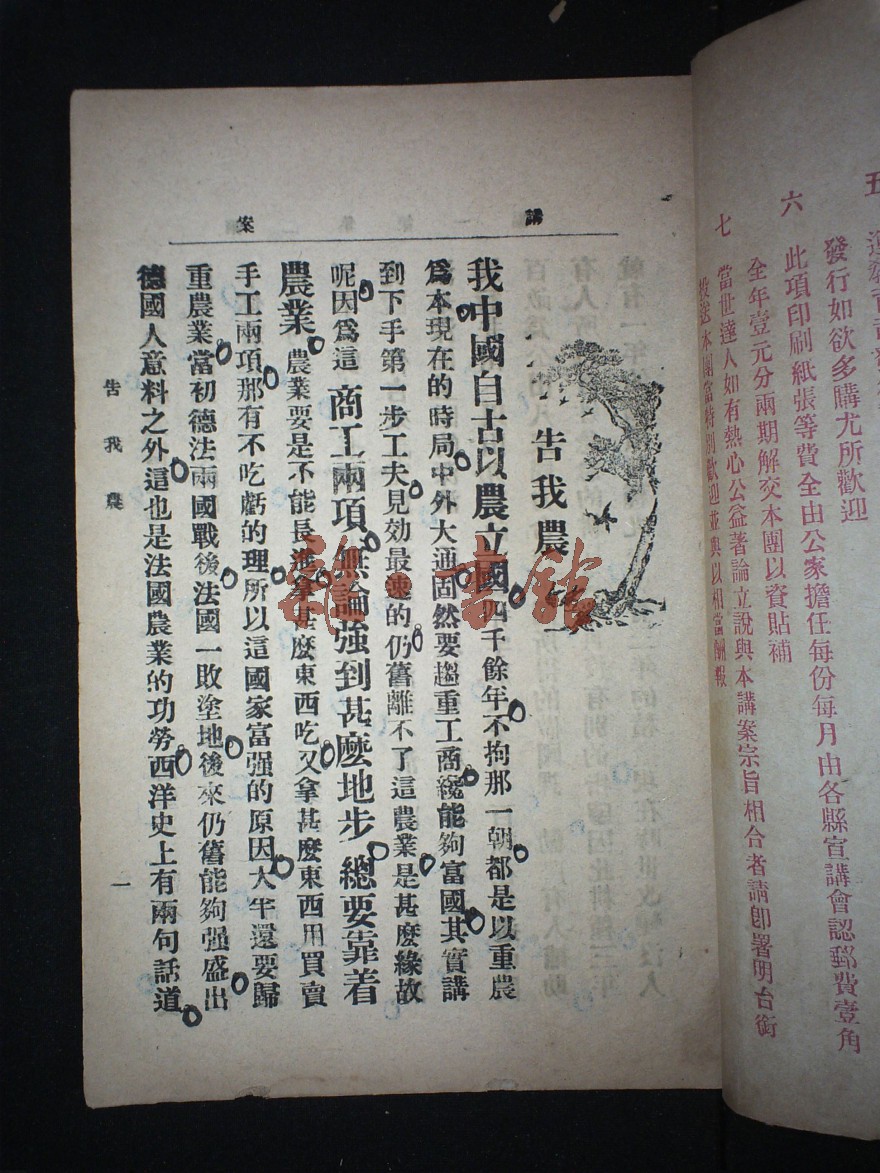 發行如欲多購尤所歡迎
六 此項印刷紙張等費全由公家擔任每份每月由各縣宣講會認郵費壹角
全年壹元分兩期解交本團以資貼補
七 當世達人如有熱心公益著論立說與本講案宗旨相合者請卽署明台銜
投送本團當特別歡迎並與以相當酬報
講案
告我農
我中國自古以農立國四千餘年不拘那一朝都是以重農
爲本現在的時局中外大通固然要趨重工商纔能夠富國其實講
到下手第一步工夫見効最速的仍舊離不了這農業是甚麽緣故
呢因爲這商工兩項無論強到甚麽地步總要靠着
農業農業要是不能長進拿甚麽東西吃又拿甚麽東西用買賣
手工兩項那有不吃虧的理所以這國家富强的原因大半還要歸
重農業當初德法兩國戰後法國一敗塗地後來仍舊能夠强盛出
德國人意料之外這也是法國農業的功勞西洋史上有兩句話道
告我農
一
雜·書館